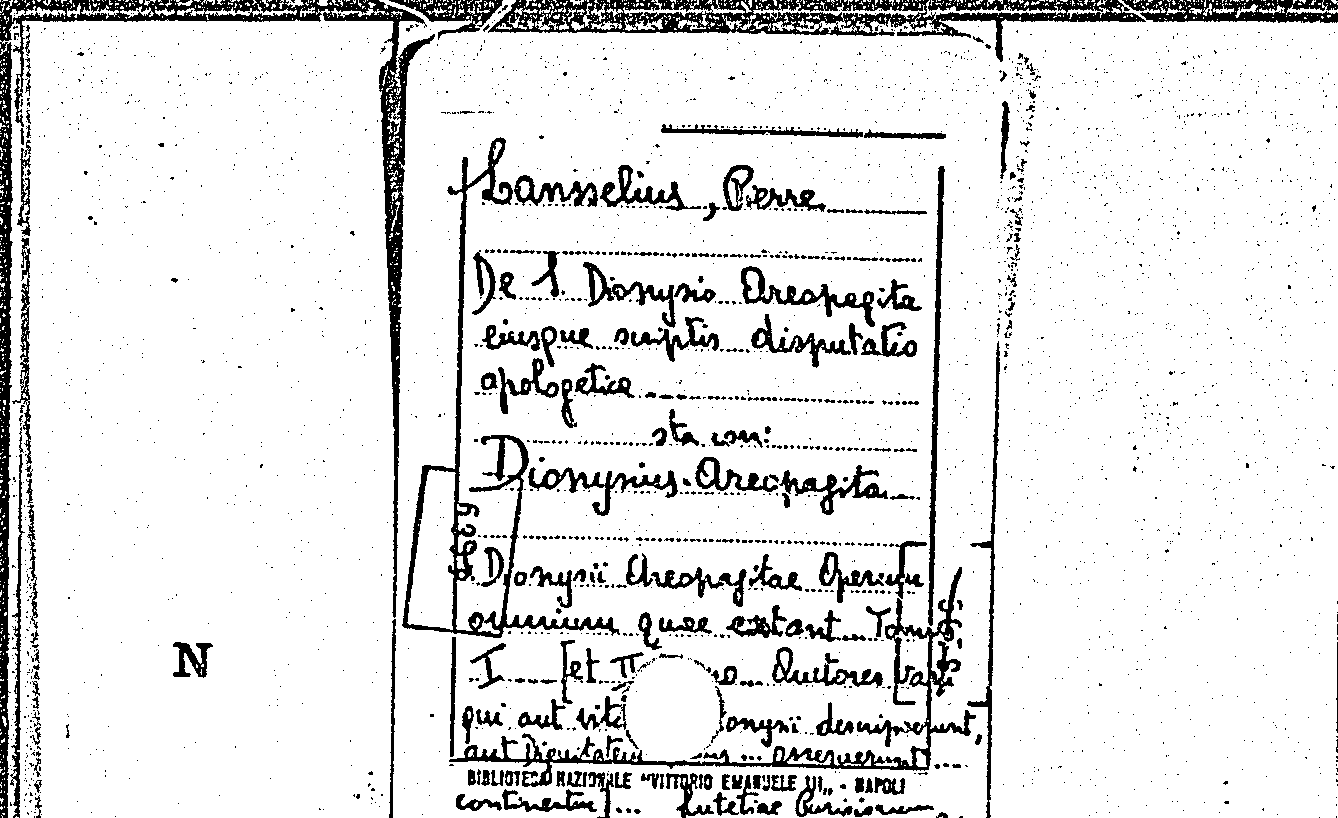 Lansselius, Pierre
De S. Dionysio Areopagita
eiusque scriptis disputatio
apologetica
sta con:
Dionysius Areopagita
Dionysii Areopagitae Operum
omnium quae extant... Tomus
I ... [et II ... Auctores varii
qui aut vita onysii descripserunt,
aut Dignitatem ... asseruerunt...
BIBLIOTECA NAZIONALE "VITTORIO EMANUELE III" - NAPOLI
continentur]... Lutetiae Parisiorum,
N